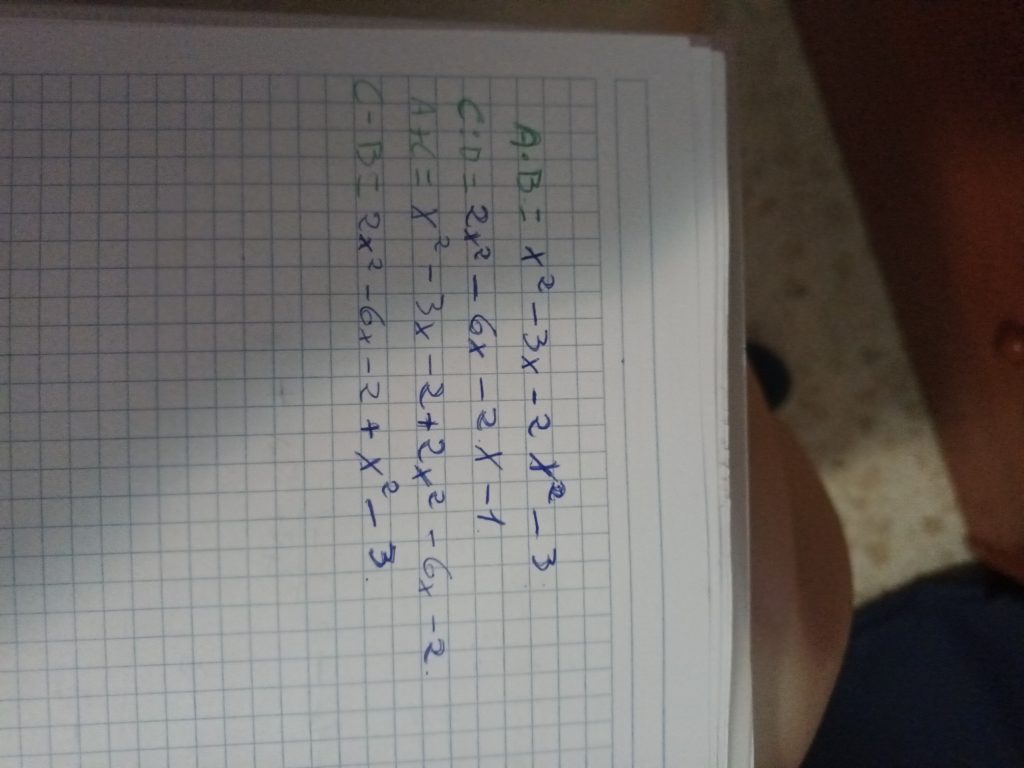 A·B = x² - 3x - 2 x² - 3
C:D = 2x² - 6x - 2 x - 1
A+C = x² - 3x - 2 + 2x² - 6x - 2
C-B = 2x² - 6x - 2 + x² - 3